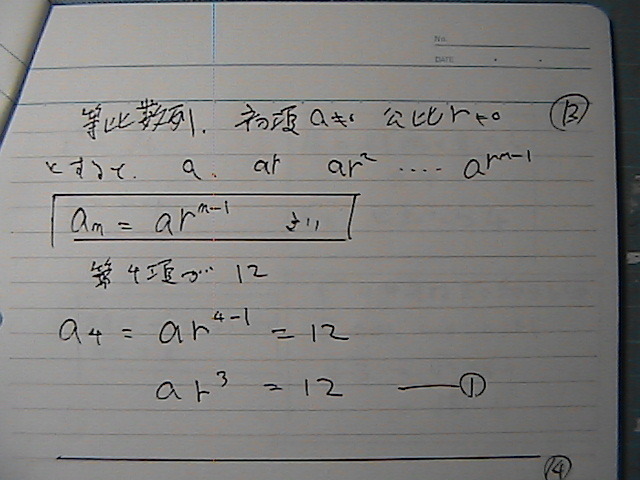 No.
DATE
等比数列. 初項 a≠0 公比 r≠0 ⑬
とすると. a. ar ar² ‥‥ ar^{n-1}
aₙ = ar^{n-1} より
第4項が 12
a₄ = ar^{4-1} = 12
ar³ = 12 ——①
④